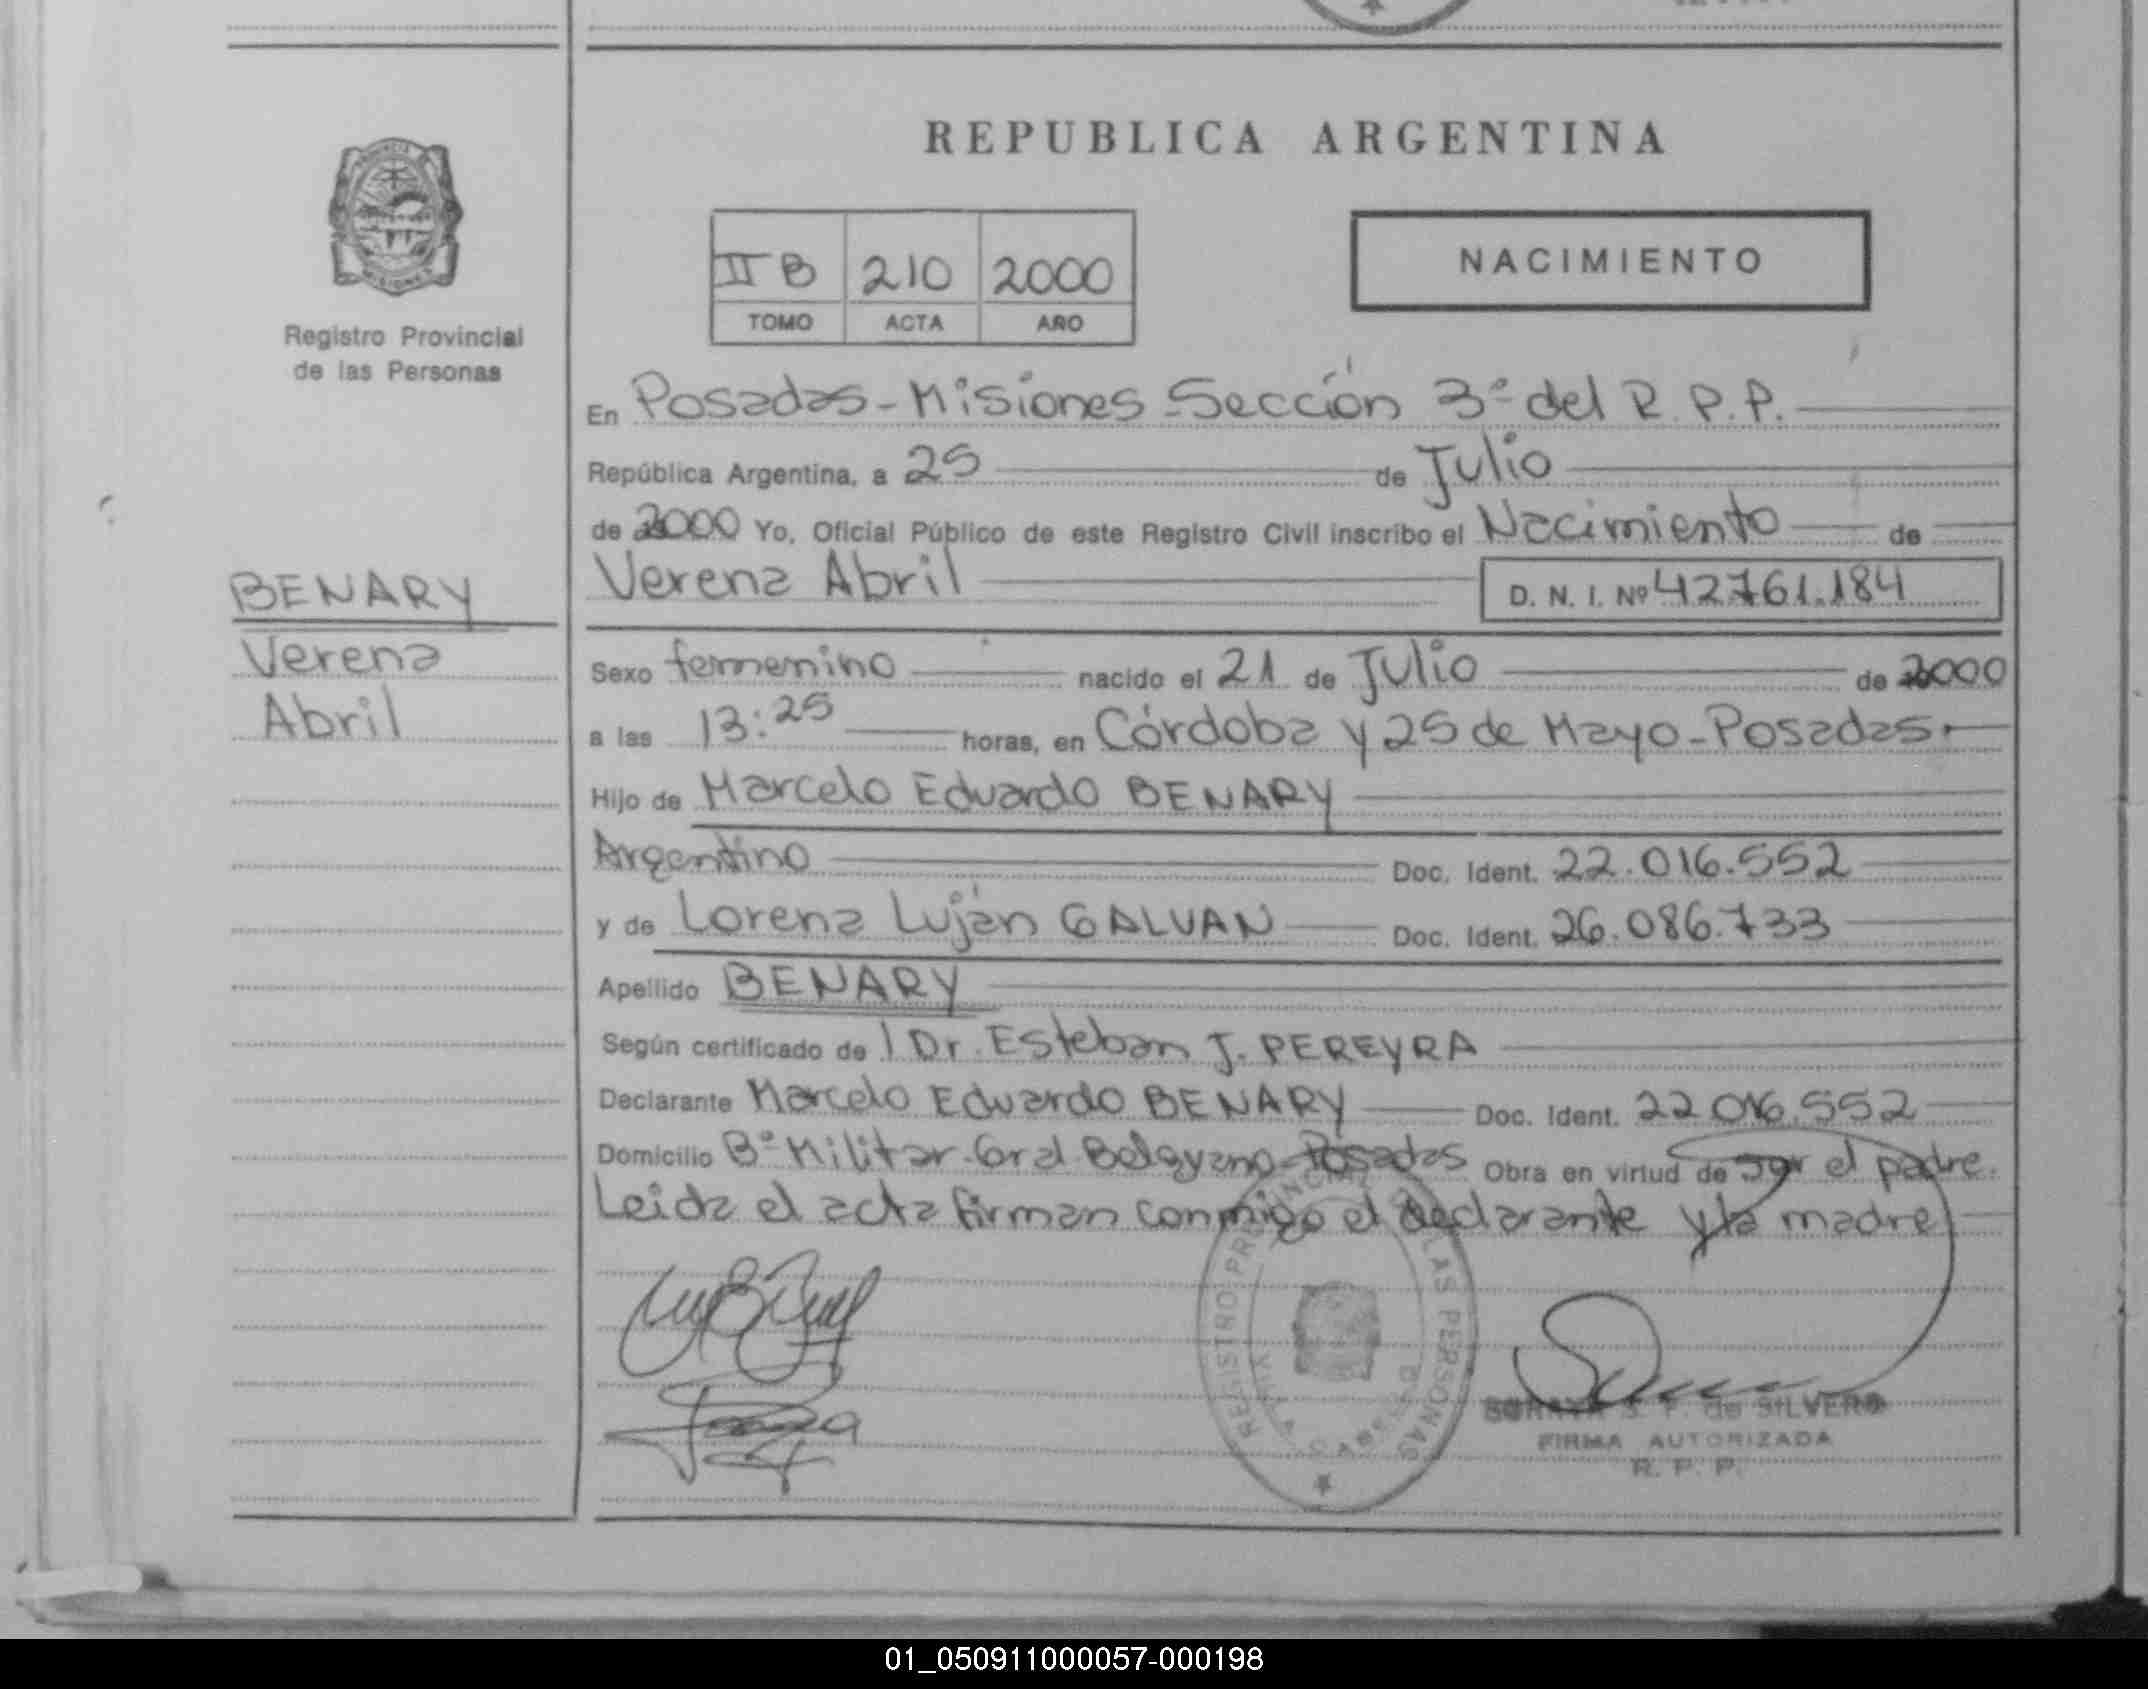 REPUBLICA ARGENTINA
Registro Provincial
de las Personas
II B 210 2000
TOMO ACTA AÑO
NACIMIENTO
En Posadas - Misiones - Sección 3ª del R.P.P.
República Argentina, a 25 de Julio
de 2000 Yo, Oficial Público de este Registro Civil inscribo el Nacimiento de
Verena Abril D. N. I. Nº 42761.184
BENARY
Verena
Abril
Sexo femenino nacido el 21 de Julio de 2000
a las 13:25 horas, en Córdoba y 25 de Mayo - Posadas.
Hijo de Marcelo Eduardo BENARY
Argentino Doc. Ident. 22.016.552
y de Lorena Luján GALVAN Doc. Ident. 26.086.733
Apellido BENARY
Según certificado de l Dr. Esteban J. PEREYRA
Declarante Marcelo Eduardo BENARY Doc. Ident. 22.016.552
Domicilio Bº Militar Gral Belgrano - Posadas Obra en virtud de ser el padre.
Leida el acta firman conmigo el declarante y la madre
REGISTRO PROVINCIAL DE LAS PERSONAS
SORAYA S. F. de SILVERO
FIRMA AUTORIZADA
R. P. P.
01_050911000057-000198